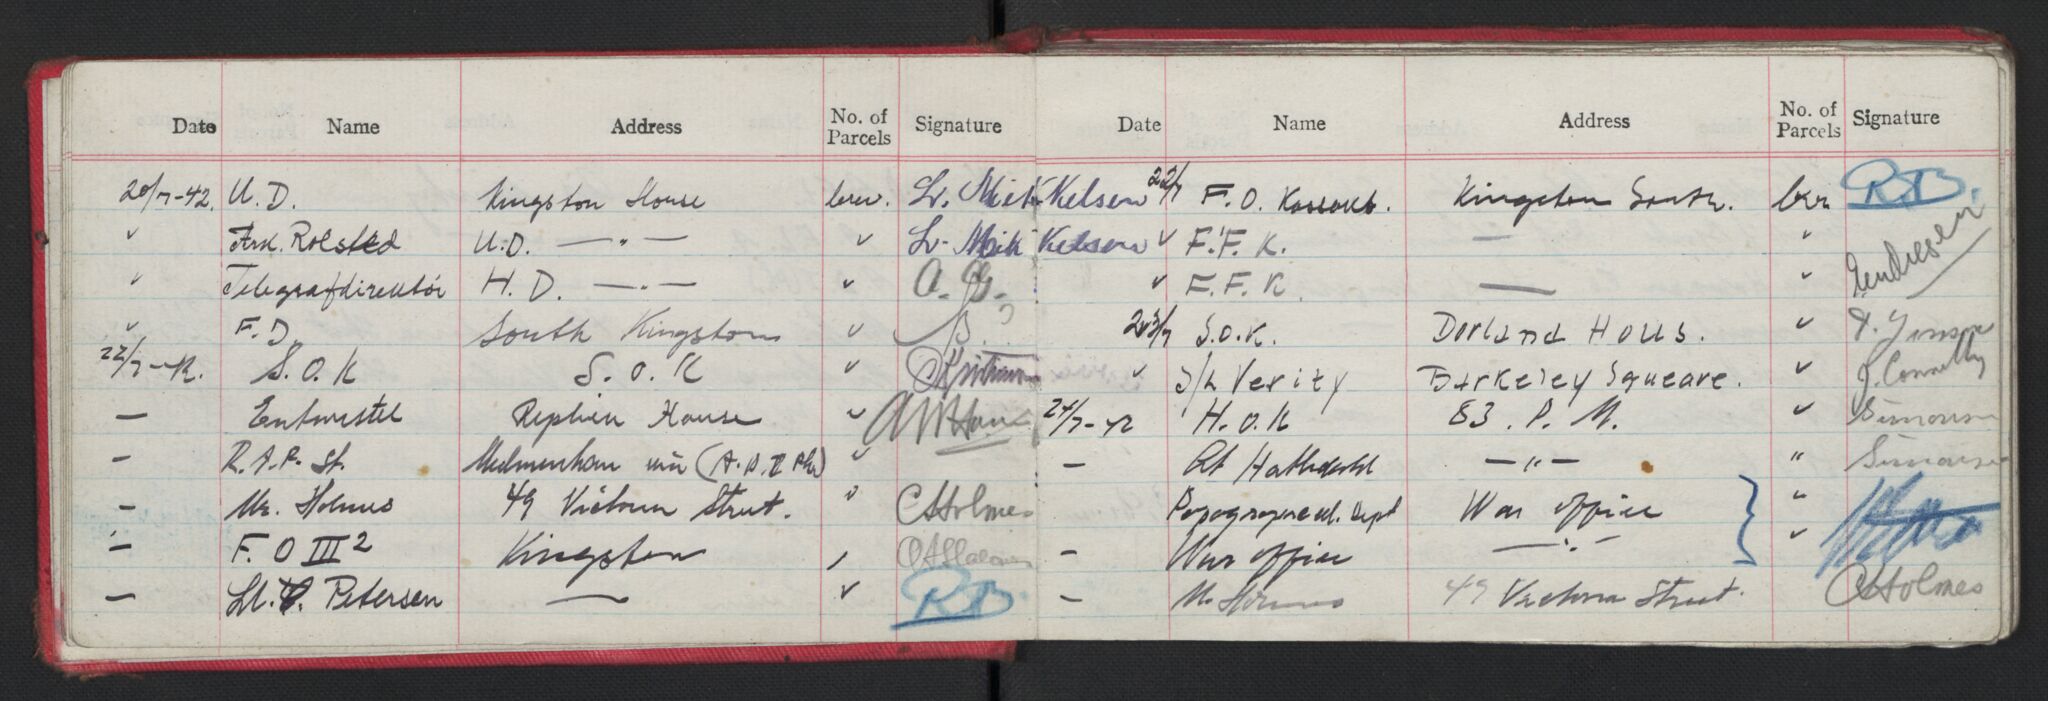 Date Name Address No. of Parcels Signature
20/7-42. U.D. Kingston House brev. Lt. Mick Kelsen
" Ark. Rolsted U.D. —"— " Lt. Mick Kelsen
" Telegrafdirektör H.D. —"— " A.G.
" F.D South Kingston "
22/7-42. S.O.K S.O.K "
— Entwistel House "
— R.A.F. St. Medmenham via "
— Mr. Holmes 49 Victoria Street. " CHolmes
— F.O III 2 Kingston ,
— Lt. Petersen — " RB.
Date Name Address No. of Parcels Signature
22/7 F.O. Kingston South. brev RB.
" F.F.K. — "
" F.F.K. — " Endresen
23/7 S.O.K. Dorland Hous. "
" S/L Verity Berkeley Squeare. " J. Connelly
24/7-42 H.O.K 83. P.M. " Simonsen
— At —"— " Simonsen
Dept War office "
— War office —"— "
— M. Holmes 49 Victoria Street. CHolmes